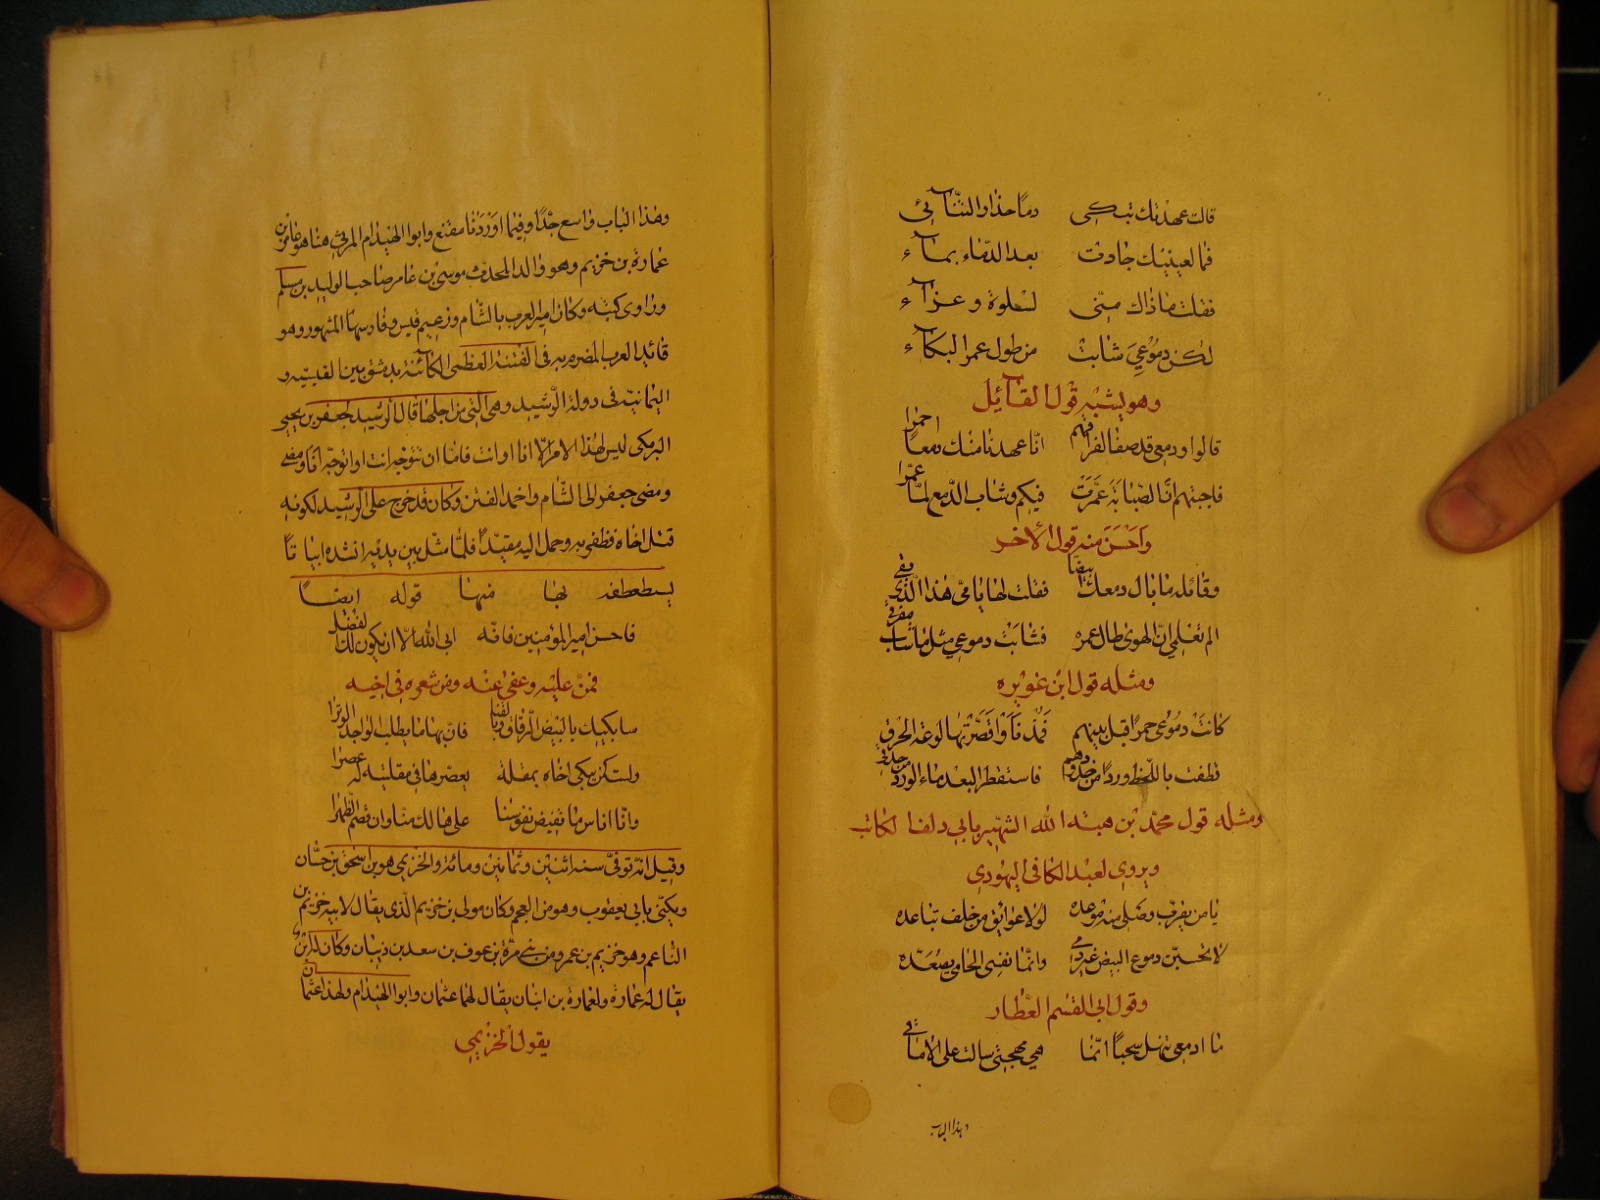 قالت عهدتك تبكي دماً حذار التنائي
فما لعينيك جادت بعد الدماء بماء
فقلت ما ذاك مني لسلوة وعزاء
لكن دموعي شابت من طول عمر البكاء
وهو يشبه قول القائل
قالوا ودمعي قد صفا لفراقهم انا عهدنا منك دمعاً احمرا
فاجبتهم ان الصبابة عمرت فيكم وشاب الدمع لما عمرا
واحسن منه قول الاخر
وقائلة ما بال دمعك ابيضا فقلت لها يا مي هذا الذي بقي
الم تعلمي ان الهوى طال عمره فشابت دموعي مثل ما شاب مفرقي
ومثله قول ابن
كانت دموعي حمراً قبل بينهم فمذ نأوا قصرتها لوعة الحرق
قطفت باللحظ ورداً من خدودهم فاستقطر البعد ماء الورد من حدقي
ومثله قول محمد بن هبة الله الشهير بابي دلف الكاتب
ويروى لعبد الكافي اليهودي
يا من يقرب وصلي منه موعده لولا عوائق من خلف تباعده
لا تحسبن دموع البيض غير دمي وانما نفسي الحامي يصعده
وقول ابي القسم العطار
ما ادمعي تنهل سحباً انما هي مهجتي سالت على الاماقي
وهذا الباب
وهذا الباب واسع جداً وفيما اوردنا مقنع وابو الهيذام المري هنا هو عامر بن
عمارة بن خزيم وهو والد المحدث موسى بن عامر صاحب الوليد بن مسلم
وراوي كتبه وكان امير العرب بالشام وزعيم قيس وفارسها المشهور وهو
قائد العرب المضرية في الفتنة العظمى الكائنة بدمشق بين القيسية و
اليمانية في دولة الرشيد وهي التي من اجلها قال الرشيد لجعفر بن يحيى
البرمكي ليس لهذا الامر الا انا او انت فاما ان تتوجه انت او اتوجه انا
ومضى جعفر الى الشام واخمد الفتن وكان قد خرج على الرشيد لكونه
قتل اخاه فظفر به وحمل اليه مقيداً فلما مثل بين يديه انشده ابياتاً
يستعطفه بها منها قوله ايضاً
فاحسن امير المؤمنين فانه ابى الله الا ان يكون لك الفضل
فمن عليه وعفى عنه ومن شعره في اخيه
سابكيك بالبيض الرقاق وبالقنا فان بها ما يطلب الواجد الوترا
ولست كمن يبكي اخاه بمقلة يعصرها في مقلتيه له عصرا
وانا اناس ما تفيض نفوسنا على هالك منا وان قصم الظهرا
وقيل انه توفي سنة اثنتين وثمانين ومائة والخزيمي هو بن اسحق بن حسان
ويكنى بابي يعقوب وهو من العجم وكان مولى بن خزيم الذي يقال لابيه خزيم
الناعم وهو خزيم بن عمرو من بني مرة بن عوف بن سعد بن ذبيان وكان له ابن
يقال له عمارة ولعمارة بن ابنان يقال لهما عثمان وابو الهيذام ولهذا عثمان
يقول الخزيمي